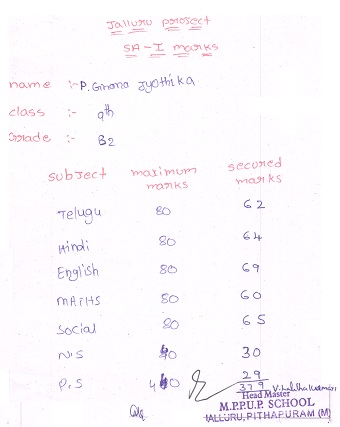 Jalluru project
SA-I marks
name :- P. Gnana Jyothika
class :- 9th
Grade :- B2
subject maximum marks secured marks
Telugu 80 62
Hindi 80 64
English 80 69
MATHS 80 60
Social 80 65
N.S 40 30
P.S 40 29
379
V. Lalitha kumari
Head Master
M.P.P.U.P. SCHOOL
JALLURU, PITHAPURAM (M)